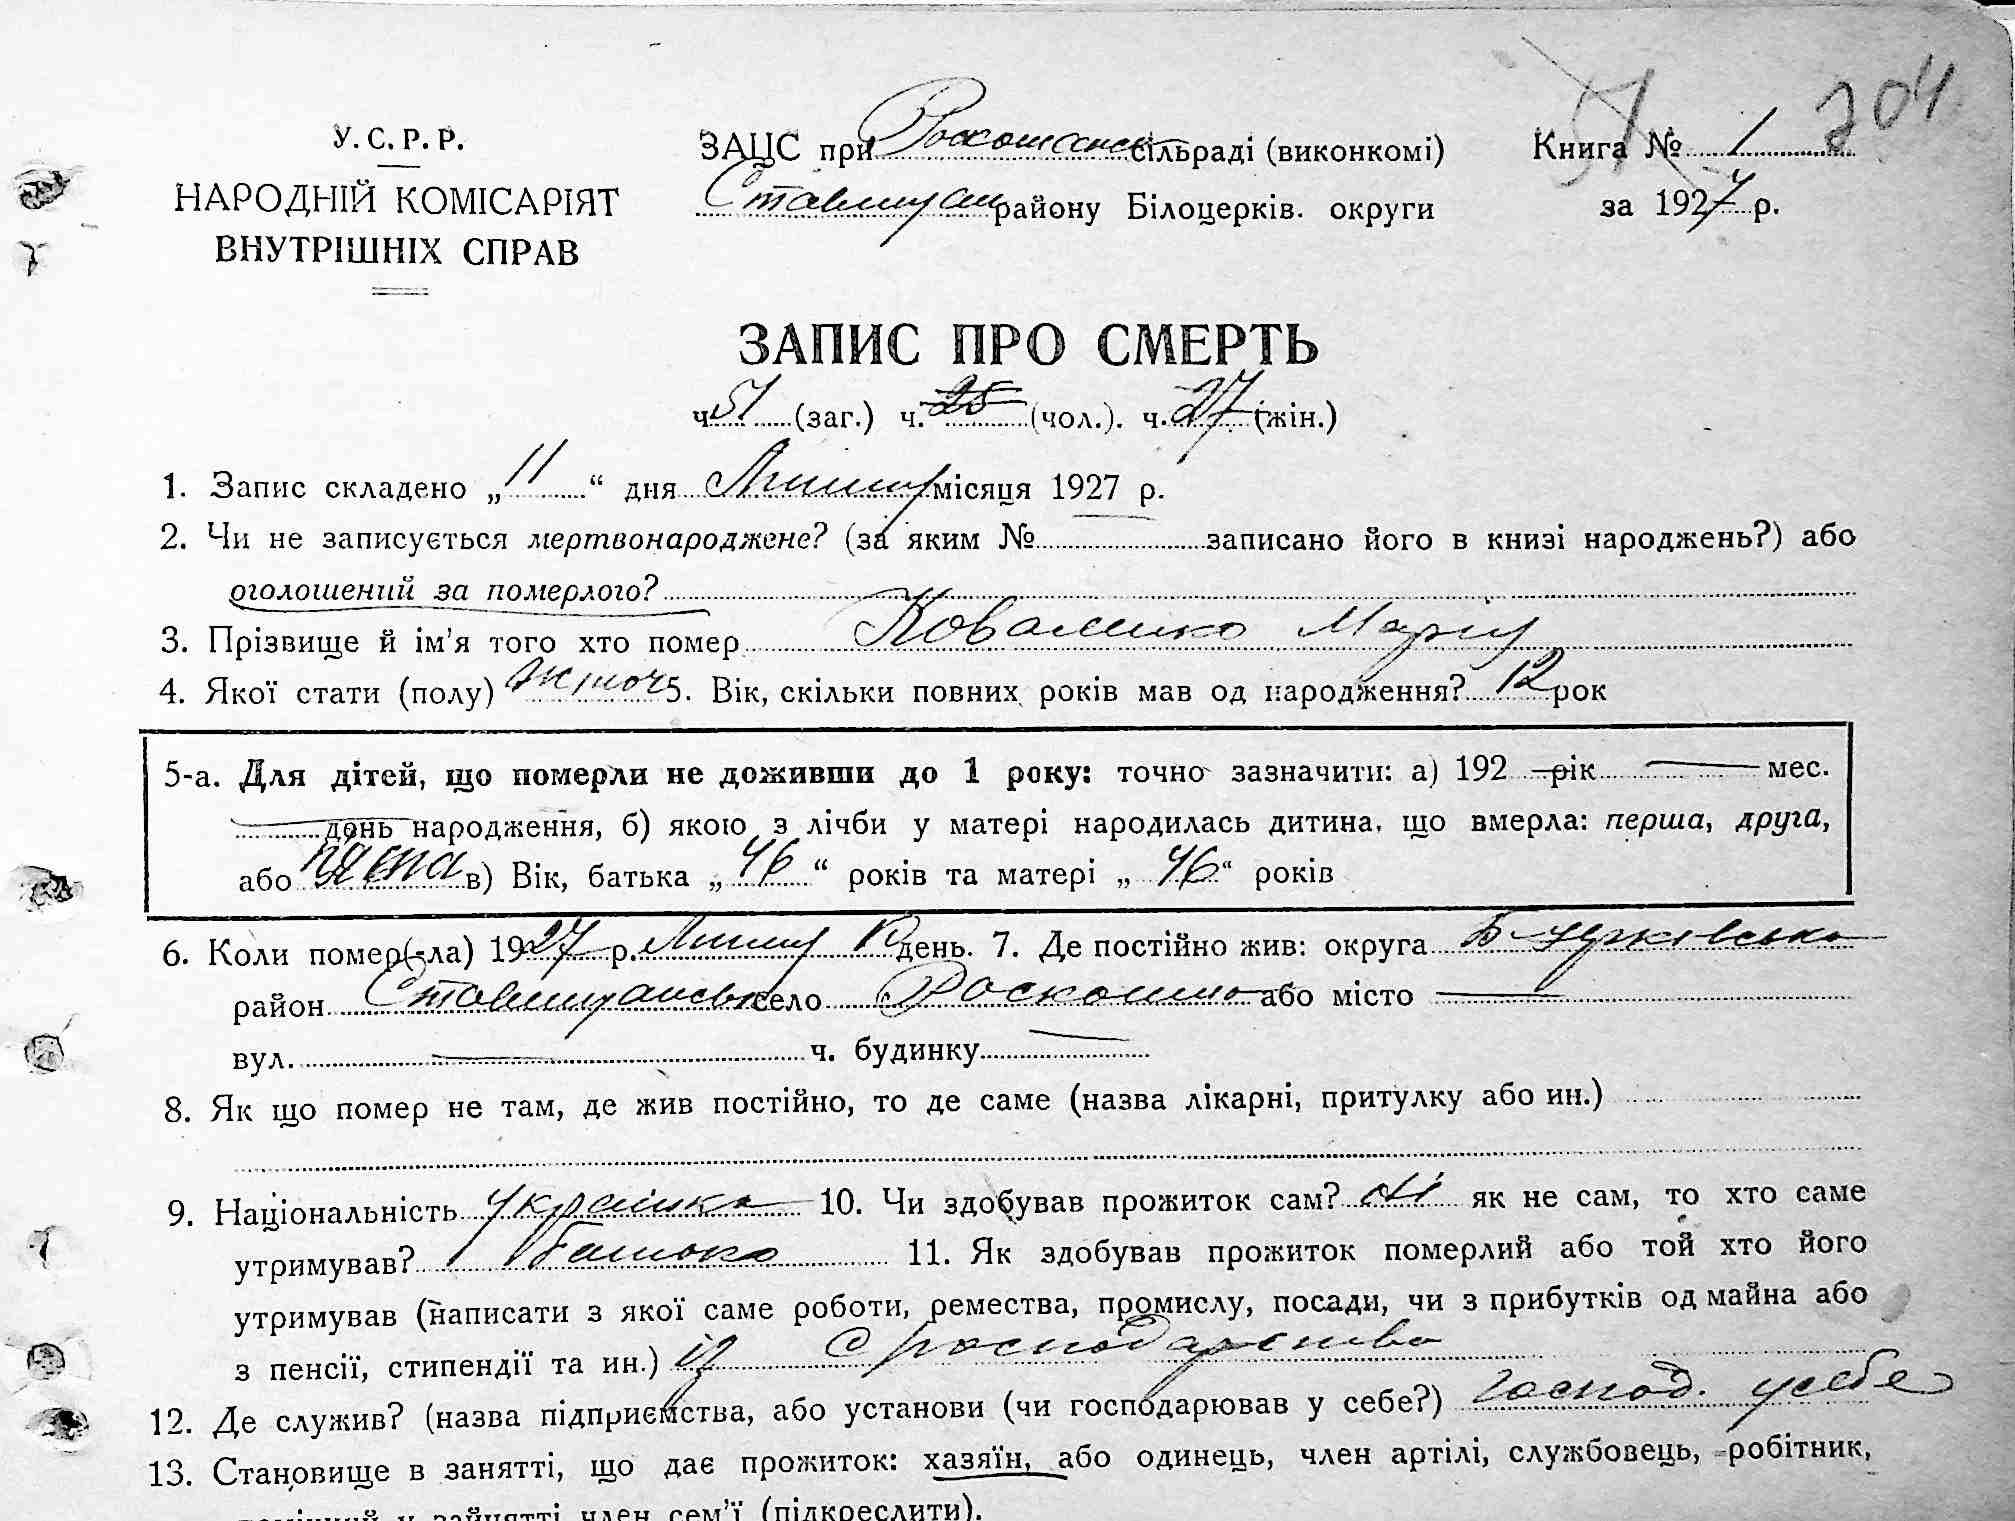 204
У. С. Р. Р.
НАРОДНІЙ КОМІСАРІЯТ
ВНУТРІШНІХ СПРАВ
ЗАЦС при Роскошанск сільраді (виконкомі)
Ставищан району Білоцерків. округи
Книга № 1
за 1927 р.
ЗАПИС ПРО СМЕРТЬ
ч. 51 (заг.) ч. 25 (чол.). ч. 27 (жін.)
1. Запис складено „ 11 “ дня Липню місяця 1927 р.
2. Чи не записується мертвонароджене? (за яким № записано його в книзі народжень?) або
оголошений за померлого?
3. Прізвище й ім'я того хто помер Коваленко Марія
4. Якої стати (полу) жіноч 5. Вік, скільки повних років мав од народження? 12 рок
5-а. Для дітей, що померли не доживши до 1 року: точно зазначити: а) 192 — рік — мес.
— день народження, б) якою з лічби у матері народилась дитина, що вмерла: перша, друга,
або пята в) Вік, батька „ 46 “ років та матері „ 46 “ років
6. Коли помер(-ла) 1927 р. Липню 10 день. 7. Де постійно жив: округа Б-Церківська
район Ставищанськ село Роскошна або місто —
вул. — ч. будинку —
8. Як що помер не там, де жив постійно, то де саме (назва лікарні, притулку або ин.)
9. Національність українка 10. Чи здобував прожиток сам? ні як не сам, то хто саме
утримував? батько 11. Як здобував прожиток померлий або той хто його
утримував (написати з якої саме роботи, ремества, промислу, посади, чи з прибутків од майна або
з пенсії, стипендії та ин.) із господарства
12. Де служив? (назва підприємства, або установи (чи господарював у себе?) господ. у себе
13. Становище в занятті, що дає прожиток: хазяїн, або одинець, член артілі, службовець, робітник,
помічний у зайнятті член сем'ї (підкреслити).